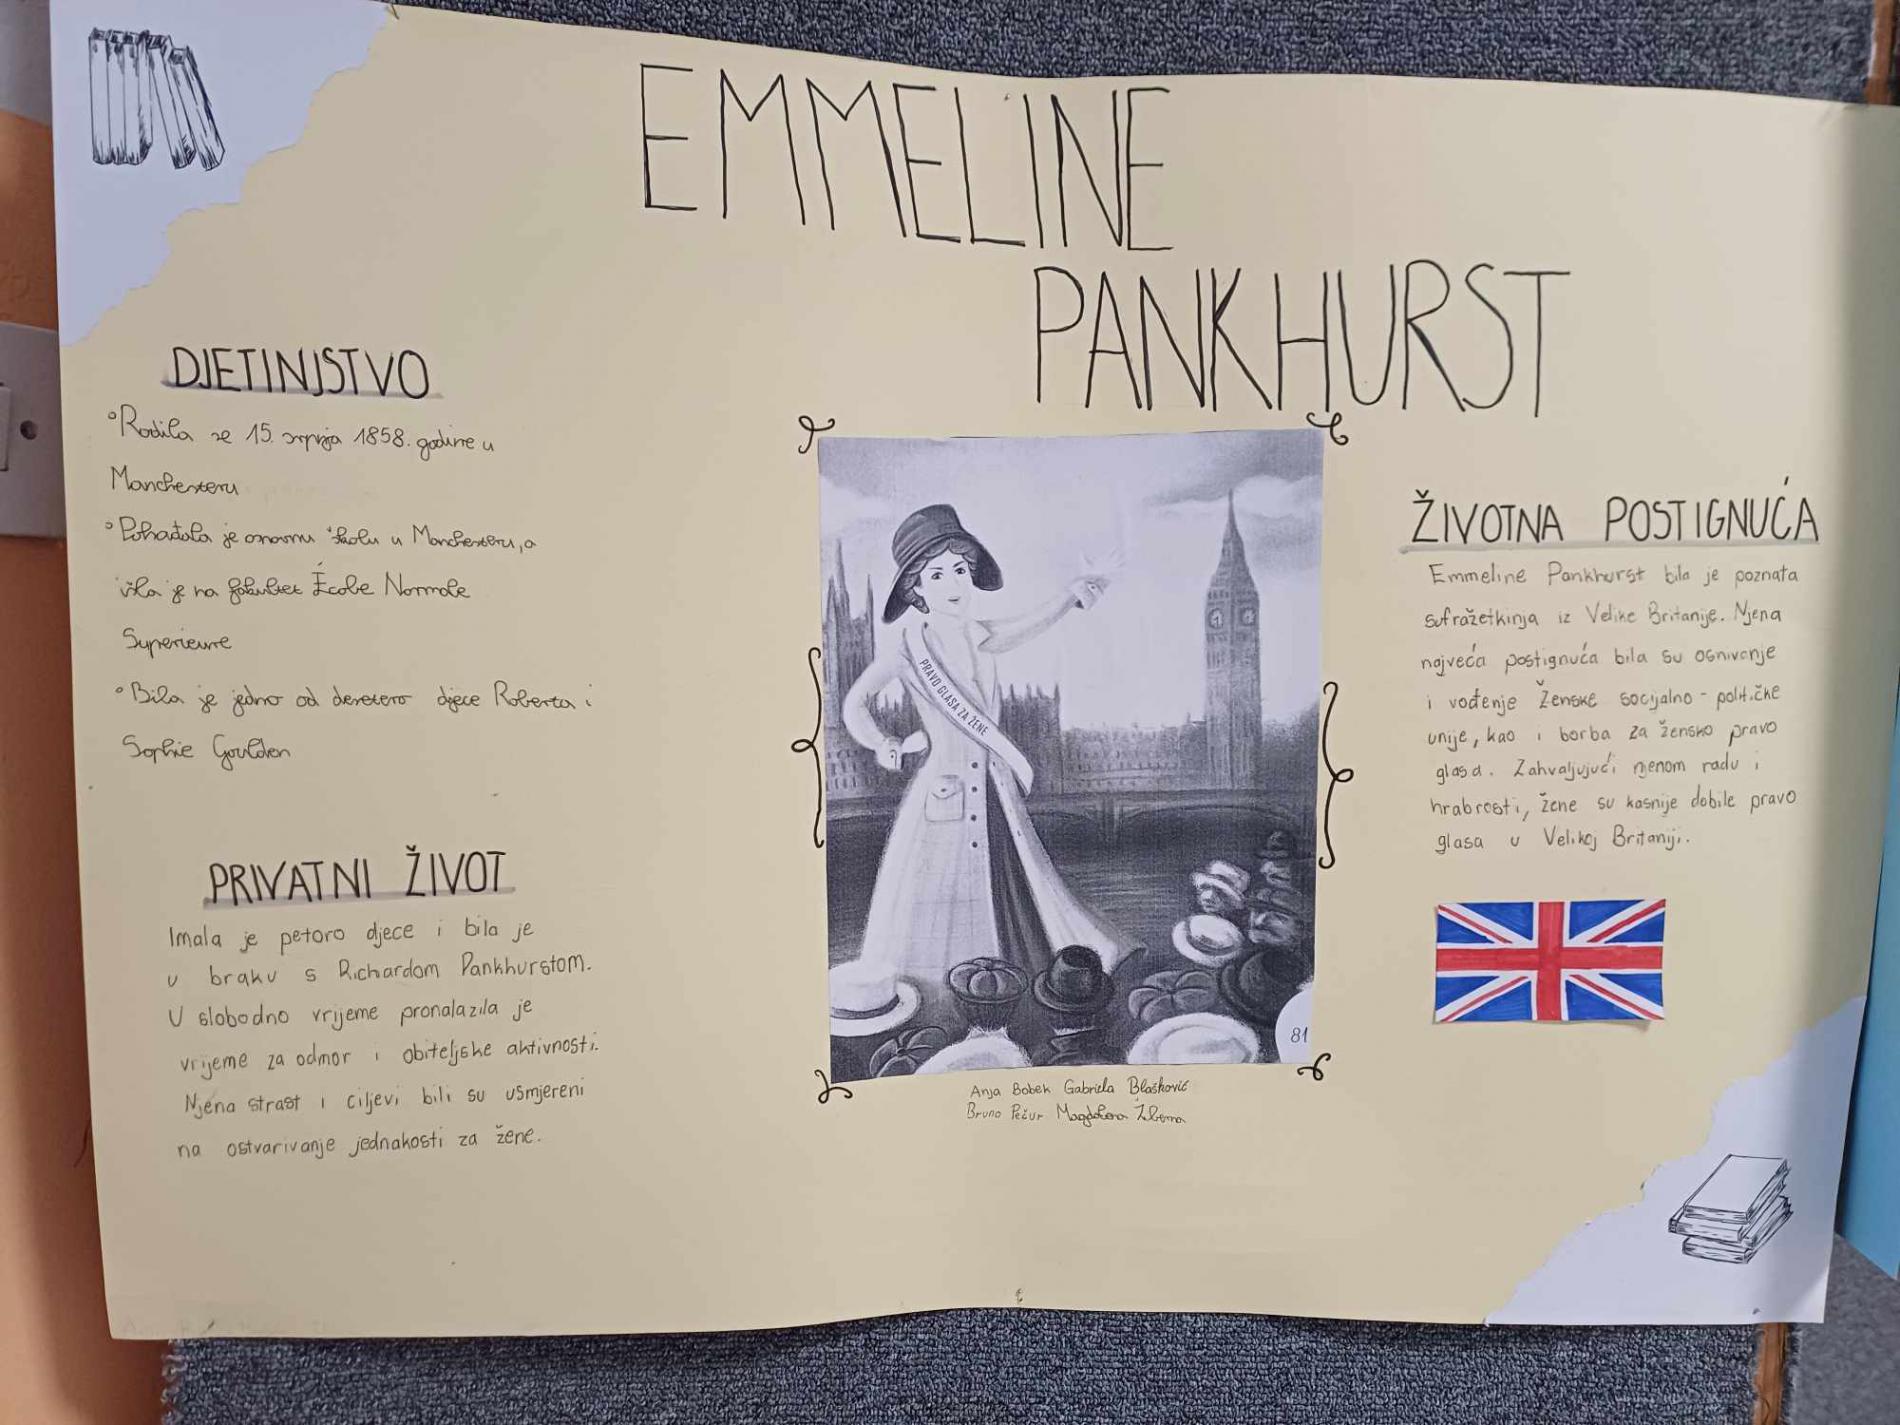 EMMELINE
PANKHURST
DJETINJSTVO
°Rodila se 15. srpnja 1858. godine u
Manchesteru
°Pohađala je osnovnu školu u Manchesteru, a
išla je na fakultet École Normale
Superieure
°Bila je jedno od desetero djece Roberta i
Sophie Goulden
PRIVATNI ŽIVOT
Imala je petoro djece i bila je
u braku s Richardom Pankhurstom.
U slobodno vrijeme pronalazila je
vrijeme za odmor i obiteljske aktivnosti.
Njena strast i ciljevi bili su usmjereni
na ostvarivanje jednakosti za žene.
PRAVO GLASA ZA ŽENE
81
Anja Bobek Gabriela Blašković
Bruno Pečur Magdalena
ŽIVOTNA POSTIGNUĆA
Emmeline Pankhurst bila je poznata
sufražetkinja iz Velike Britanije. Njena
najveća postignuća bila su osnivanje
i vođenje Ženske socijalno-političke
unije, kao i borba za žensko pravo
glasa. Zahvaljujući njenom radu i
hrabrosti, žene su kasnije dobile pravo
glasa u Velikoj Britaniji.